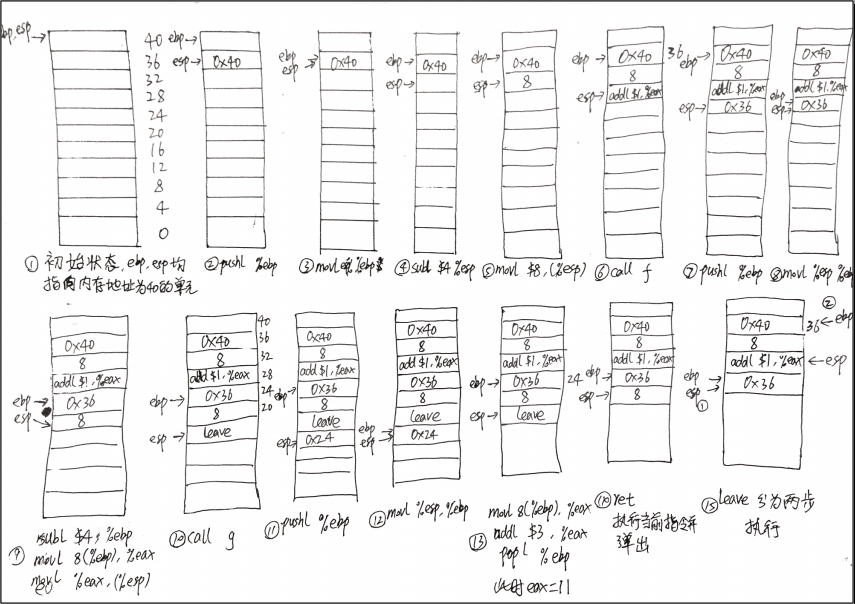 ebp,esp→
40
36
32
28
24
20
16
12
8
4
0
① 初始状态,ebp,esp均
指向内存地址为40的单元
ebp→
esp→ 0x40
② pushl %ebp
ebp
esp → 0x40
③ movl %ebp
ebp→ 0x40
esp→
④ subl $4 %esp
ebp→ 0x40
esp→ 8
⑤ movl $8,(%esp)
ebp→ 0x40 36
8
esp→ addl $1,%eax
⑥ call f
ebp→ 0x40
8
addl $1,%eax
esp→ 0x36
⑦ pushl %ebp
0x40
8
addl $1,%eax
ebp
esp→ 0x36
⑧ movl %esp %ebp
0x40
8
addl $1,%eax
ebp→ 0x36
esp→ 8
⑨ subl $4, %ebp
movl 8(%ebp), %eax
movl %eax,(%esp)
40
0x40 36
8 32
add $1,%eax 28
ebp→ 0x36 24
8 20
esp→ leave
⑩ call g
0x40
8
addl $1,%eax
ebp→ 0x36
8
leave
esp→ 0x24
⑪ pushl %ebp
0x40
8
addl $1,%eax
0x36
8
leave
ebp
esp→ 0x24
⑫ movl %esp,%ebp
0x40
8
addl $1,%eax
ebp→ 0x36
8
esp→ leave
movl 8(%ebp), %eax
⑬ addl $3, %eax
popl %ebp
此时eax=11
0x40
8
addl $1,%eax
24 ebp→ 0x36
esp→ 8
ret
执行当前指令并
弹出
②
0x40 36←ebp
8
addl $1,%eax ←esp
ebp→
esp→ 0x36
①
⑮ leave 分为两步
执行